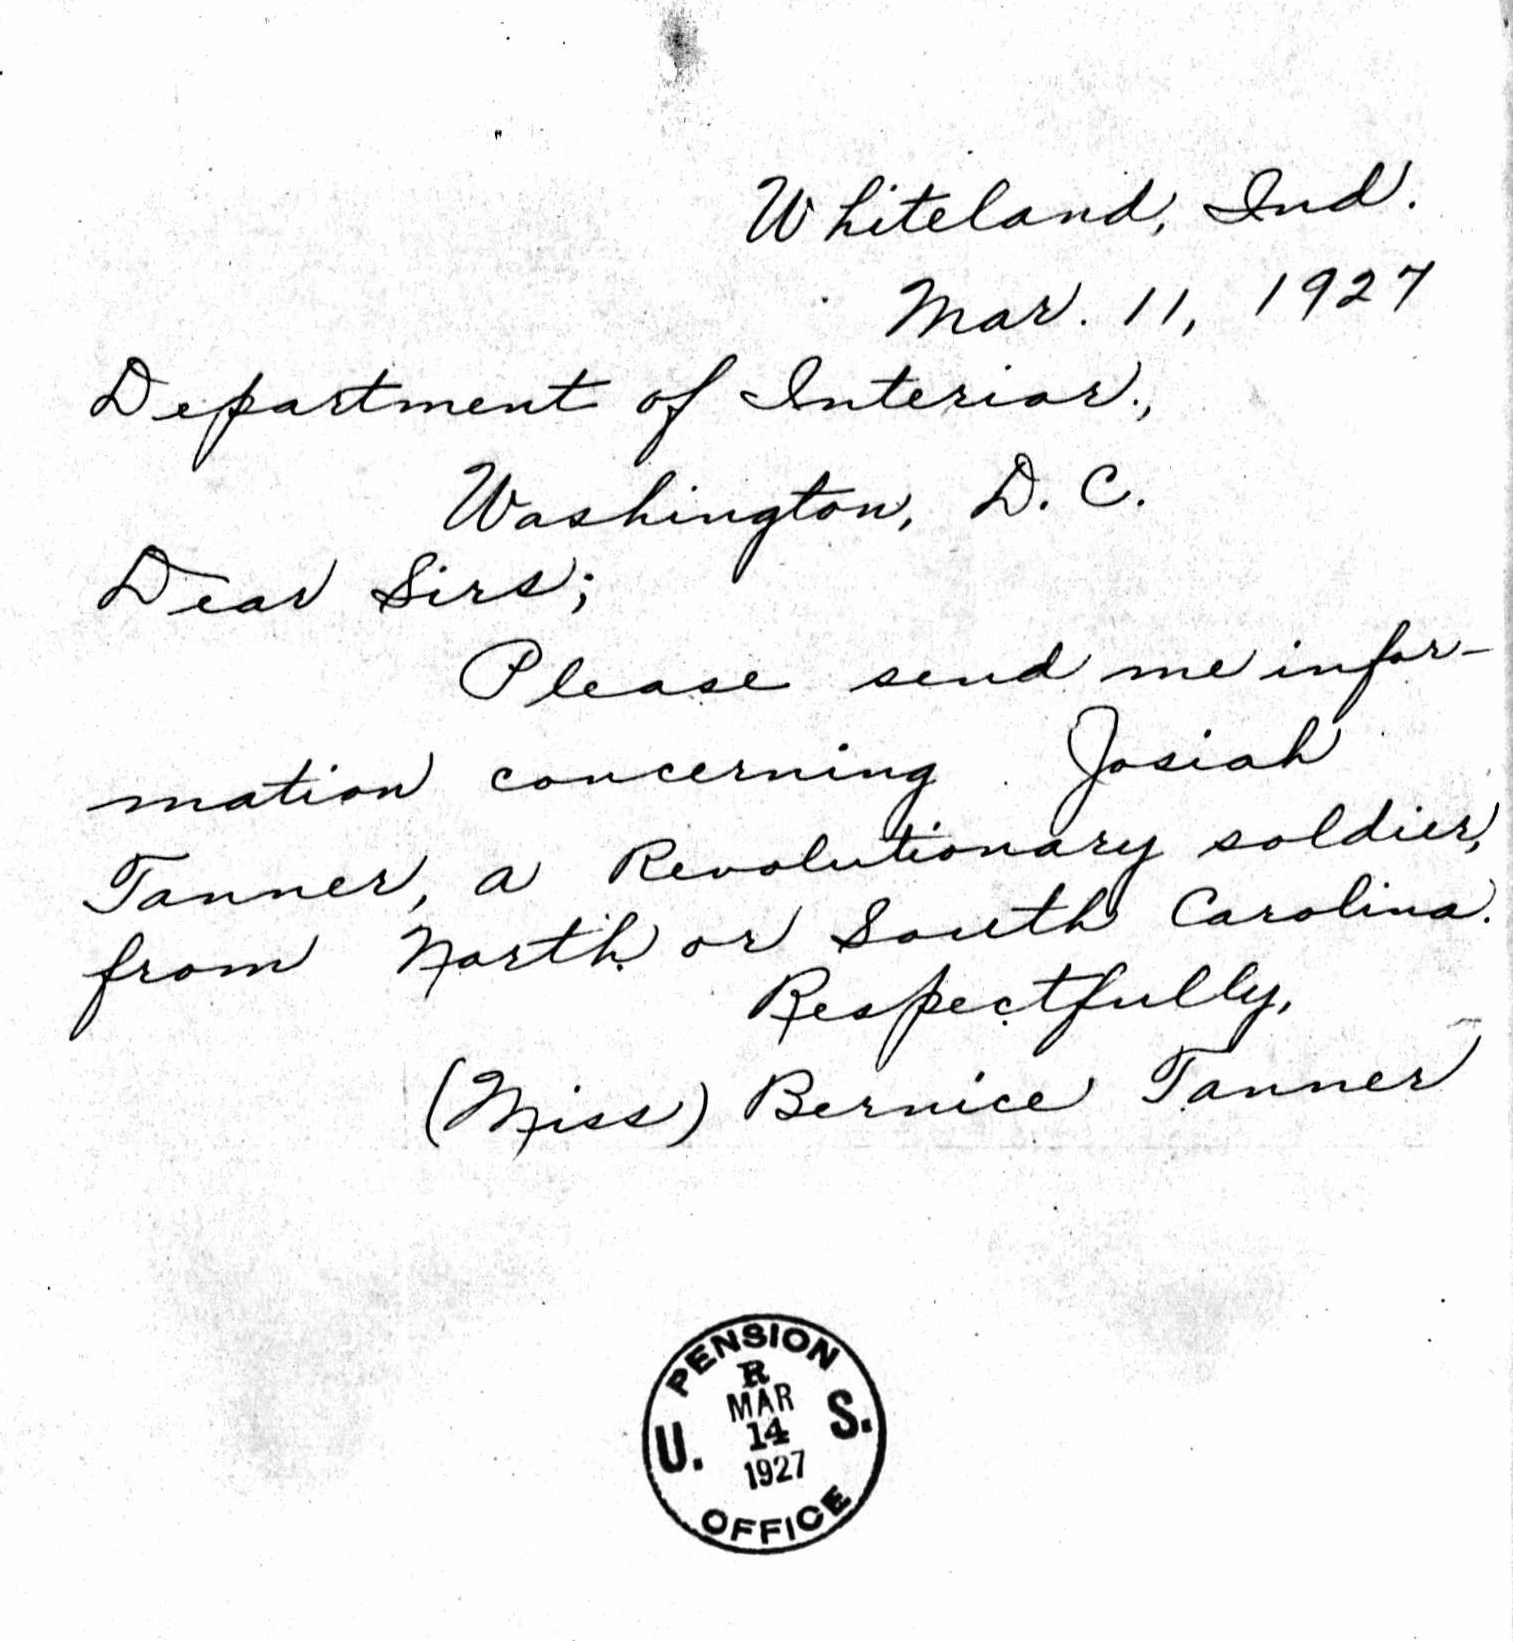 Whiteland, Ind.
Mar. 11, 1927
Department of Interior.,
Washington, D. C.
Dear Sirs;
Please send me infor-
mation concerning Josiah
Tanner, a Revolutionary soldier,
from North or South Carolina.
Respectfully,
(Miss) Bernice Tanner
PENSION
R
MAR
U. 14 S.
1927
OFFICE